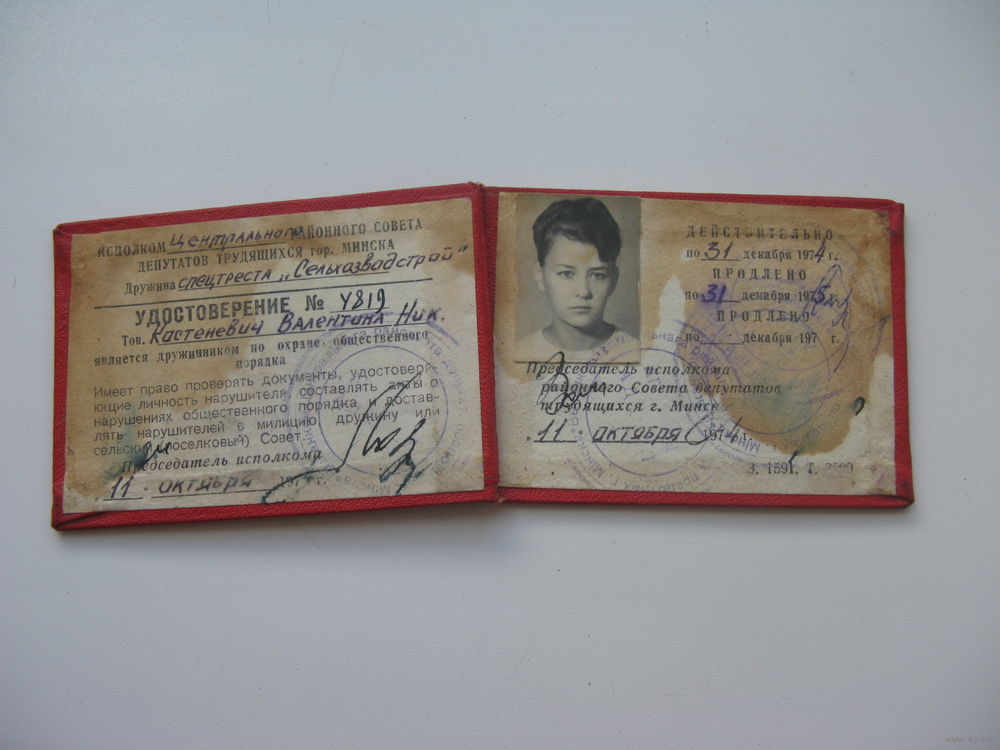 ИСПОЛКОМ Центрального РАЙОННОГО СОВЕТА
ДЕПУТАТОВ ТРУДЯЩИХСЯ гор. МИНСКА
Дружина спецтреста „Сельхазвадстрой"
УДОСТОВЕРЕНИЕ № 4819
Тов. Кастеневич Валентина Ник.
является дружинником по охране общественного
порядка
Имеет право проверять документы, удостоверя-
ющие личность нарушителя составлять акты о
нарушениях общественного порядка и достав-
лять нарушителей в милицию, дружину или
сельский (поселковый) Совет.
Председатель исполкома
11 октября 197 г.
ДЕЙСТВИТЕЛЬНО
по 31 декабря 1974 г.
ПРОДЛЕНО
по 31 декабря 1975
ПРОДЛЕНО
по декабря 197 г.
Председатель исполкома
районного Совета депутатов
трудящихся г. Минска
11 октября 1974 г.
З. 1591. Т.
www.ay.by